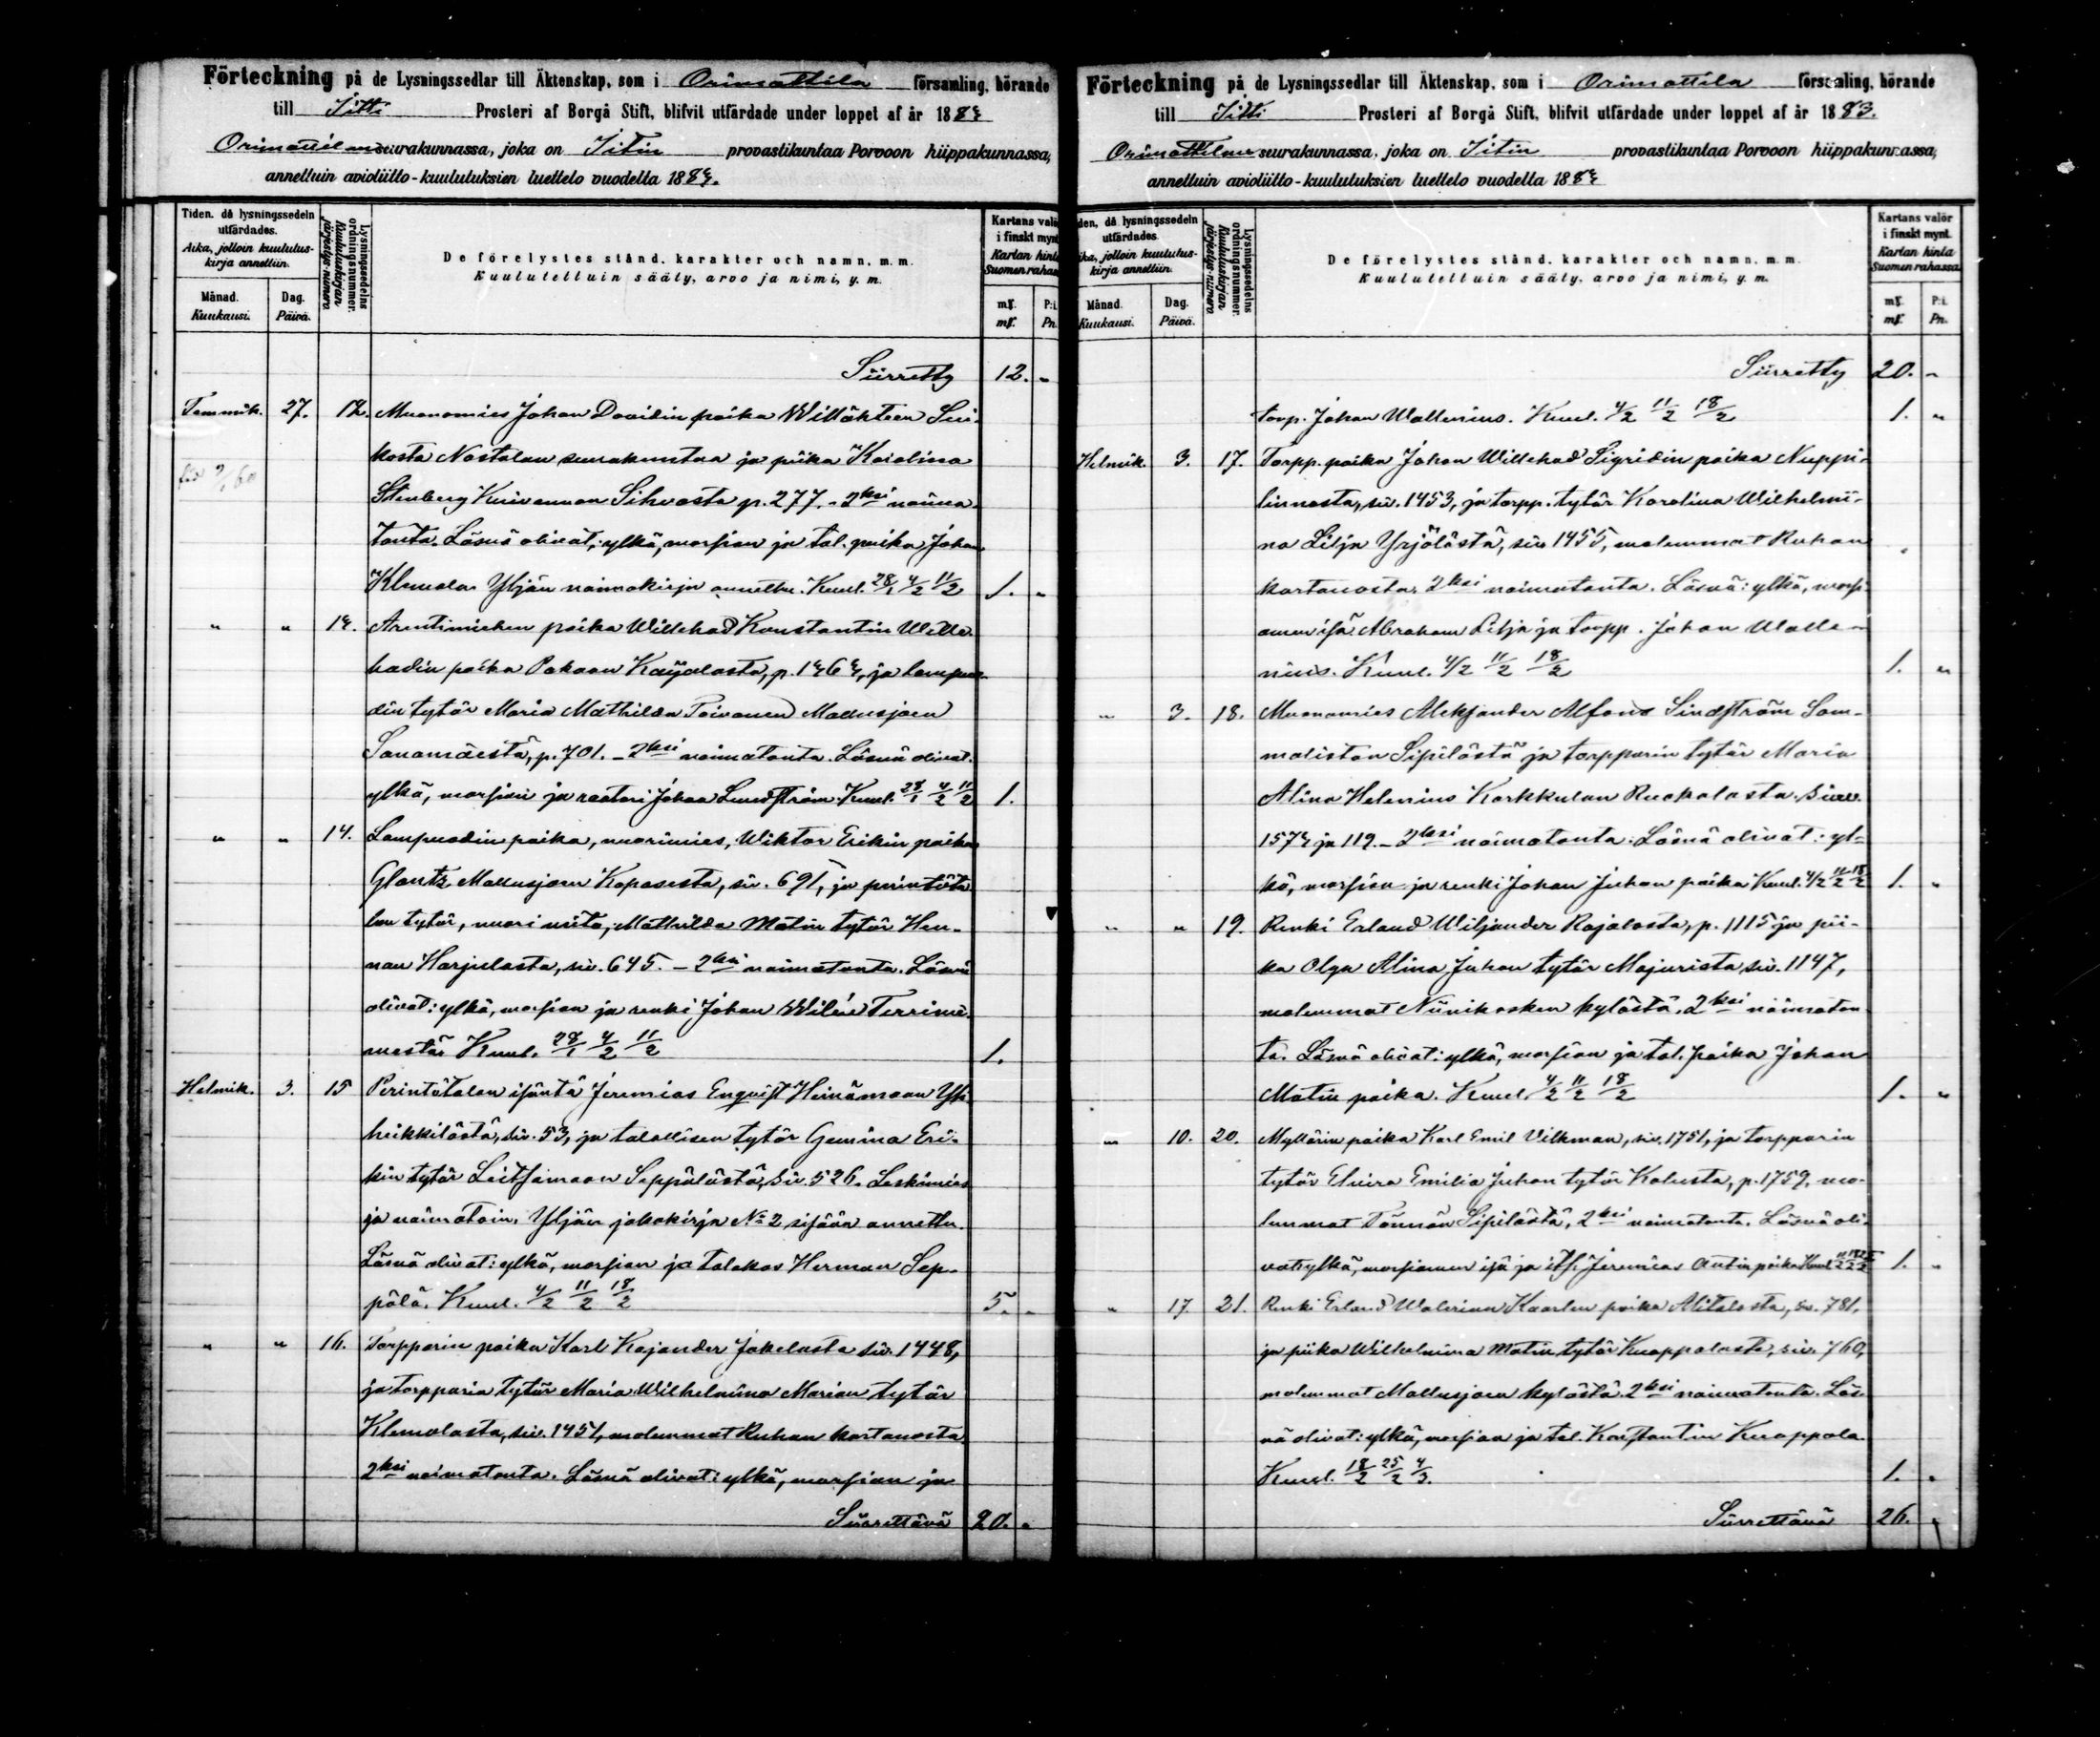 Förteckning på de Lysningssedlar till Äktenskap, som i Orimattila församling, hörande
till Iitti Prosteri af Borgå Stift, blifvit utfärdade under loppet af år 1883
Orimattilan seurakunnassa, joka on Iitin provastikuntaa Porvoon hiippakunnassa,
annettuin avioliitto-kuulutuksien luettelo vuodella 1883.
Tiden, då lysningssedeln utfärdades.
Aika, jolloin kuulutuskirja annettiin.
Månad. Kuukausi.
Dag. Päivä.
Lysningssedelns ordningsnummer.
Kuulutuskirjan järjestys-numero
De förelystes stånd, karakter och namn, m. m.
Kuulutelluin sääty, arvo ja nimi, y. m.
Kartans valör i finskt mynt.
Kartan hinta Suomen rahassa
mf. P:i.
mf. Pn.
Siirretty 12. "
Tammik. 27. 12. Muonamies Johan Davidin poika Willähteen
kosta Nastolan seurakuntaa ja piika Karolina
Stenberg Kuivannon Sihvosta p. 277. - 2ksi naima-
tonta. Läsnä olivat: ylkä, morsian ja tal. poika Johan
Klemola. Yljän naimakirja annettu. Kuul. 28/1 4/2 11/2 1. "
" " 13. Arentimiehen poika Willehad Konstantin Wille-
hadin poika Pakaan p. 1363, ja lampuo-
din tytär Maria Mathilda Toivonen Mallusjoen
Sanamäestä, p. 701. - 2ksi naimatonta. Läsnä olivat:
ylkä, morsian ja raatari Johan Lundström. Kuul. 28/1 4/2 11/2 1.
" " 14. Lampuodin poika, nuorimies, Wiktor Erikin poika
Glantz Mallusjoen Kopasesta, siv. 691, ja perintöta-
lon tytär, nuori neito, Mathilda Matin tytär Hen-
nan Harjulasta, siv. 645. - 2ksi naimatonta. Läsnä
olivat: ylkä, morsian ja renki Johan Wilén
mestä Kuul. 28/1 4/2 11/2 1.
Helmik. 3. 15 Perintötalon isäntä Jeremias Enqvist Heinämaan Yli-
heikkilästä, siv. 53, ja talollisen tytär Gemina Eri-
kin tytär Leitsamaan Seppälästä, siv. 526. Leskimies
ja naimatoin. Yljän jakokirja No 2 sisään annettu.
Läsnä olivat: ylkä, morsian ja talokas Herman Sep-
pälä. Kuul. 4/2 11/2 18/2 5. "
" " 16. Torpparin poika Karl Kajander Jakelasta siv. 1448,
ja torpparin tytär Maria Wilhelmina Marian tytär
Klemolasta, siv. 1451, molemmat Ruhan kartanosta
2ksi naimatonta. Läsnä olivat: ylkä, morsian ja
Siirrettävä 20. "
Förteckning på de Lysningssedlar till Äktenskap, som i Orimattila församling, hörande
till Iitti Prosteri af Borgå Stift, blifvit utfärdade under loppet af år 1883.
Orimattilan seurakunnassa, joka on Iitin provastikuntaa Porvoon hiippakunnassa,
annettuin avioliitto-kuulutuksien luettelo vuodella 1883
den, då lysningssedeln utfärdades.
ika, jolloin kuulutuskirja annettiin.
Månad. Kuukausi.
Dag. Päivä.
Lysningssedelns ordningsnummer.
Kuulutuskirjan järjestys-numero
De förelystes stånd, karakter och namn, m. m.
Kuulutelluin sääty, arvo ja nimi, y. m.
Kartans valör i finskt mynt.
Kartan hinta Suomen rahassa
mf. P:i.
mf. Pn.
Siirretty 20. "
torp. Johan Wallenius. Kuul. 4/2 11/2 18/2 1. "
Helmik. 3. 17. Torpp. poika Johan Willehad Sigridin poika Nuppi-
linnasta, siv. 1453, ja torpp. tytär Karolina Wilhelmi-
na Lilja Yrjölästä, siv. 1455, molemmat Ruhan
kartanosta. 2ksi naimatonta. Läsnä: ylkä, morsi-
amen isä Abraham Lilja ja torpp. Johan Walle-
nius. Kuul. 4/2 11/2 18/2 1. "
" 3. 18. Muonamies Aleksander Alfons Lindström Som-
maliston Sipilästä ja torpparin tytär Maria
Alina Helenius Karkkulan Ruokolasta. Siv.
1573 ja 119. - 2ksi naimatonta. Läsnä olivat: yl-
kä, morsian ja renki Johan Juhan poika Kuul. 4/2 11/2 18/2 1. "
" " 19. Renki Erland Wiljander Rajalasta, p. 1115 ja pii-
ka Olga Alina Juhan tytär Majurista siv. 1147,
molemmat Niinikosken kylästä. 2ksi naimaton-
ta. Läsnä olivat: ylkä, morsian ja tal. poika Johan
Matin poika. Kuul. 4/2 11/2 18/2 1. "
" 10. 20. Myllärin poika Karl Emil Vilkman, siv. 1751, ja torpparin
tytär Elvira Emilia Juhan tytär Kalusta, p. 1759, mo-
lemmat Tönnön Sipilästä, 2ksi naimatonta. Läsnä oli-
vat: ylkä, morsiamen isä ja its. Jeremias Antin poika Kuul. 11/2 18/2 25/2 1. "
" 17 21. Renki Erland Walerian Kaarlen poika Alitalosta, siv. 781,
ja piika Wilhelmina Matin tytär Knappalasta, siv. 760,
molemmat Mallusjoen kylästä. 2ksi naimatonta. Läs-
nä olivat: ylkä, morsian ja tal. Konstantin Knappala.
Kuul. 18/2 25/2 4/3. 1. "
Siirrettävä 26. "